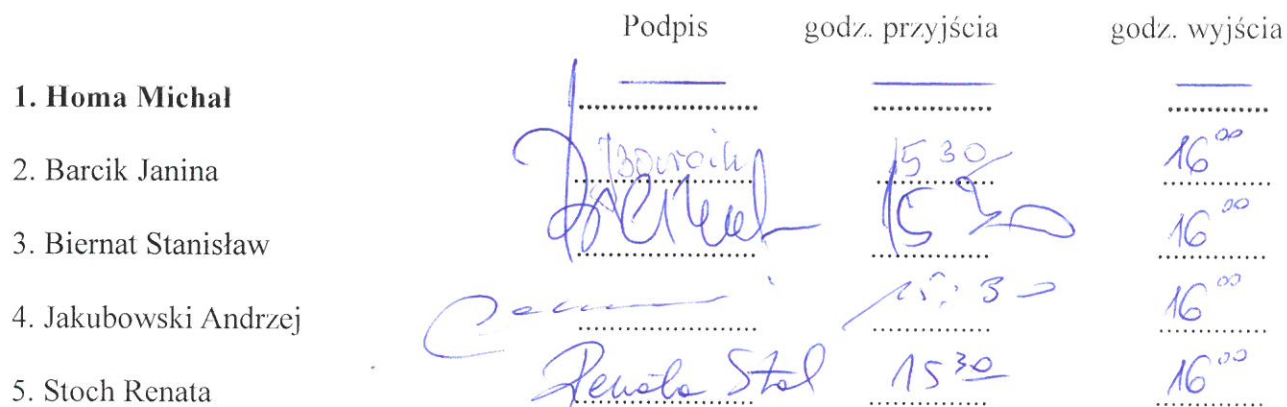 Podpis godz. przyjścia godz. wyjścia
1. Homa Michał
2. Barcik Janina JBarcik 15 30 16 00
3. Biernat Stanisław 15 30 16 00
4. Jakubowski Andrzej 15:30 16 00
5. Stoch Renata Renata 15 30 16 00